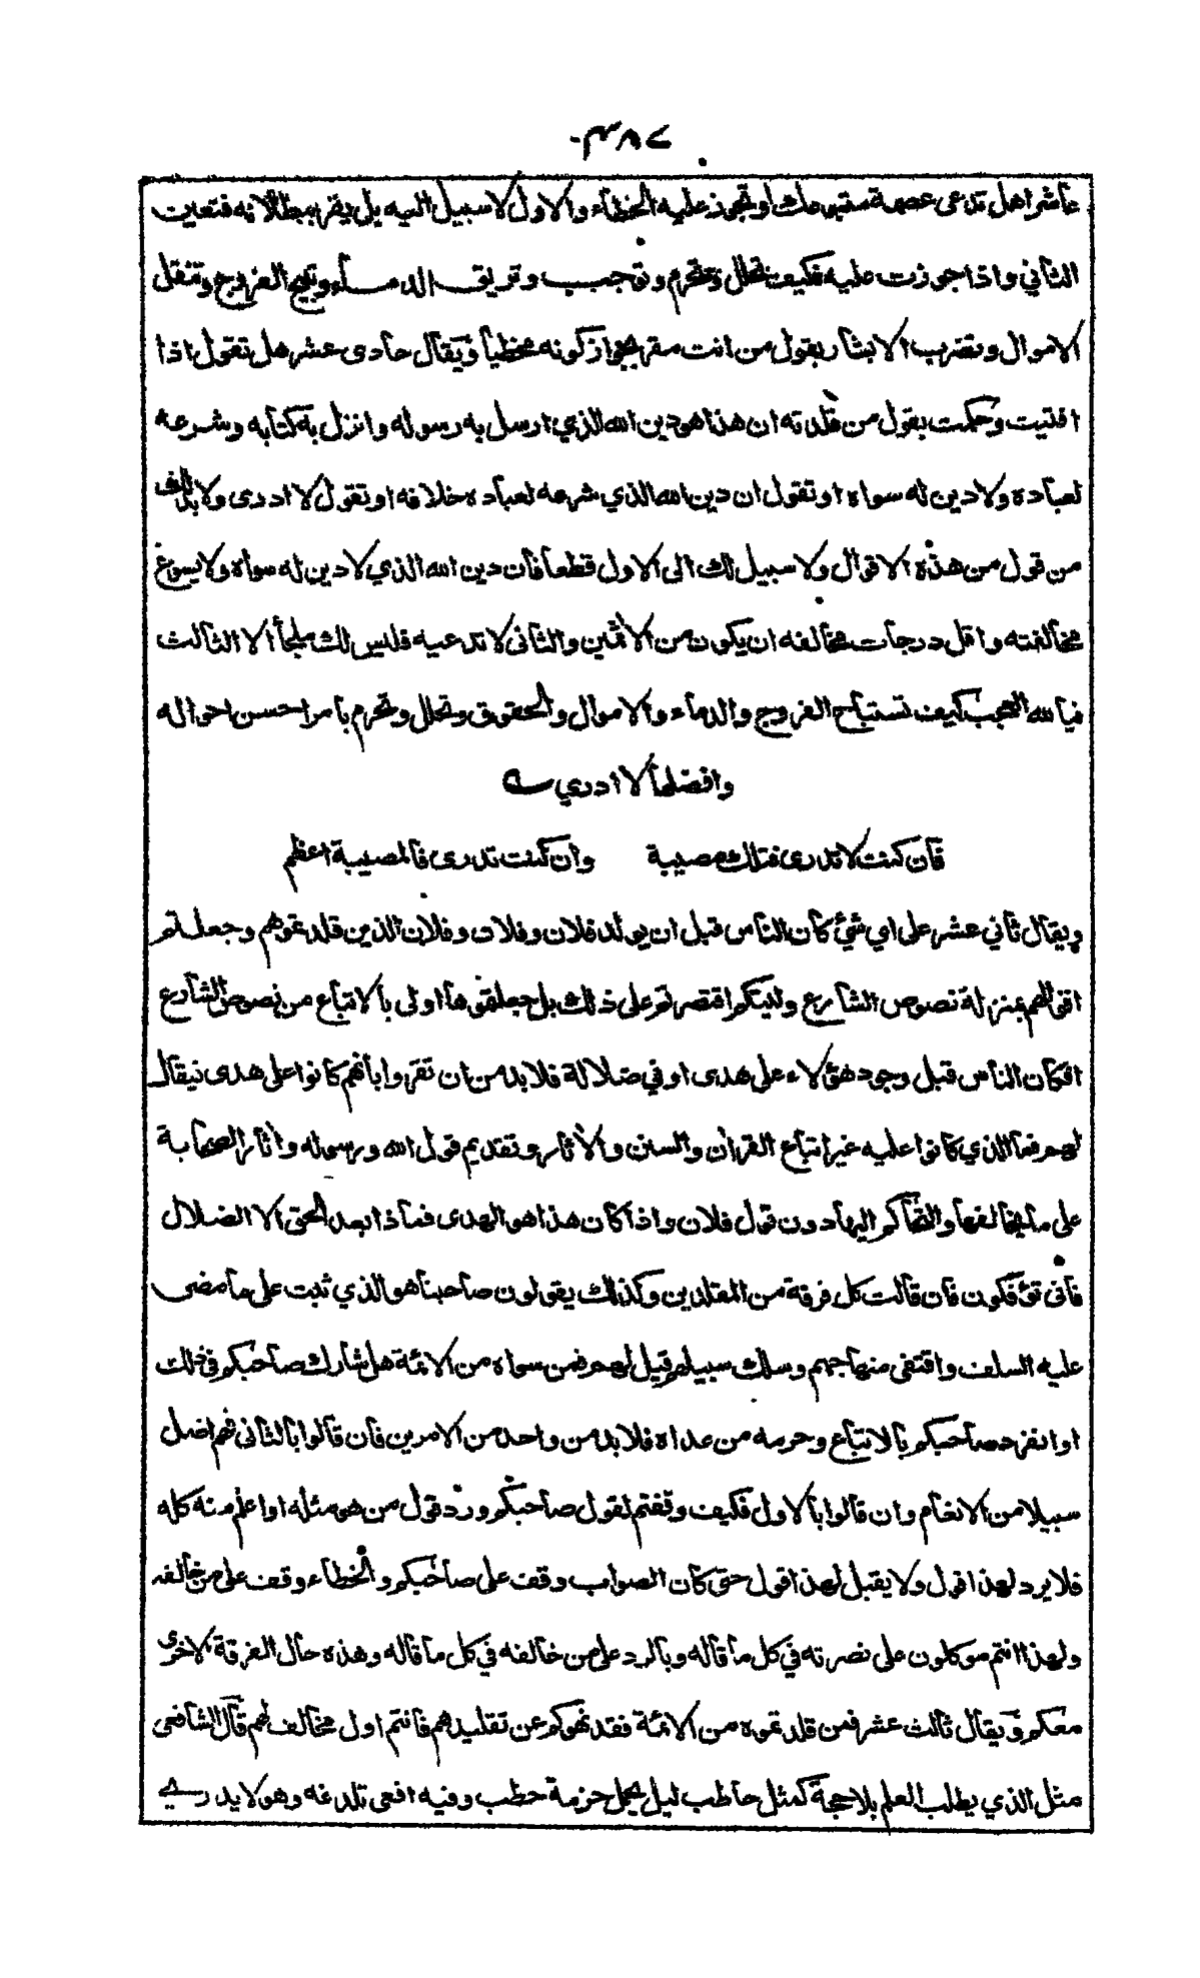 ٣٨٧
عاشر اهل تدعى عصمة متبوعك او تجوز عليه الخطاء والاول لا سبيل اليه بل يقر ببطلانه فتعين
الثاني واذا جوزت عليه فكيف تحلل وتحرم وتوجب وتريق الدماء وتبيح الفروج وتنقل
الاموال وتضرب الابشار بقول من انت مقر بجواز كونه مخطيا ويقال حادى عشر هل تقول اذا
افتيت وحكمت بقول من قلدته ان هذا هو دين الله الذي ارسل به رسوله وانزل به كتابه وشرعه
لعباده ولا دين له سواه او تقول ان دين الله الذي شرعه لعباده خلافه او تقول لا ادرى ولا بد لك
من قول من هذه الاقوال ولا سبيل لك الى الاول قطعا فان دين الله الذي لا دين له سواه ولا يسوغ
مخالفته واقل درجات مخالفه ان يكون من الاثمين والثانى لا تدعيه فليس لك ملجأ الا الثالث
فيا لله العجب كيف تستباح الفروج والدماء والاموال والحقوق وتحلل وتحرم بامر احسن احواله
وافضلها لا ادري
فان كنت لا تدرى فتلك مصيبة وان كنت تدرى فالمصيبة اعظم
ويقال ثاني عشر على اي شئ كان الناس قبل ان يولد فلان وفلان وفلان الذين قلدتموهم وجعلتم
اقوالهم بمنزلة نصوص الشارع وليتكم اقتصرتم على ذلك بل جعلتموها اولى بالاتباع من نصوص الشارع
افكان الناس قبل وجود هؤلاء على هدى او في ضلالة فلا بد من ان تقروا بانهم كانوا على هدى فيقال
لهم فما الذي كانوا عليه غير اتباع القران والسنن والاثار وتقديم قول الله ورسوله واثار الصحابة
على ما يخالفها والتحاكم اليها دون قول فلان واذا كان هذا هو الهدى فماذا بعد الحق الا الضلال
فانى تؤفكون فان قالت كل فرقة من المقلدين وكذلك يقولون صاحبنا هو الذي ثبت على ما مضى
عليه السلف واقتفى منهاجهم وسلك سبيلهم قيل لهم فمن سواه من الائمة هل شارك صاحبكم في ذلك
او انفرد صاحبكم بالاتباع وحرمه من عداه فلا بد من واحد من الامرين فان قالوا بالثانى فهم اضل
سبيلا من الانعام وان قالوا بالاول فكيف وقفتم لقول صاحبكم ورد قول من هو مثله او اعلم منه كله
فلا يرد لهذا قول ولا يقبل لهذا قول حتى كان الصواب وقف على صاحبكم والخطاء وقف على من خالفه
ولهذا انتم موكلون على نصرته في كل ما قاله وبالرد على من خالفه في كل ما قاله وهذه حال الفرقة الاخرى
معكم ويقال ثالث عشر فمن قلدتموه من الائمة فقد نهوكم عن تقليدهم فانتم اول مخالف لهم قال الشافعى
مثل الذي يطلب العلم بلا حجة كمثل حاطب ليل يحمل حزمة حطب وفيه افعى تلدغه وهو لا يدري